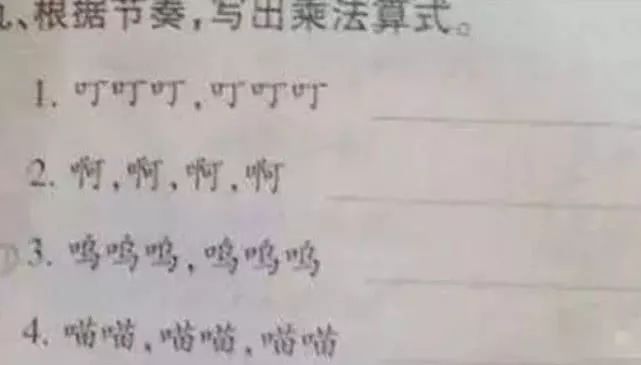 、根据节奏,写出乘法算式。
1. 叮叮叮,叮叮叮
2. 啊,啊,啊,啊
3. 呜呜呜,呜呜呜
4. 喵喵,喵喵,喵喵